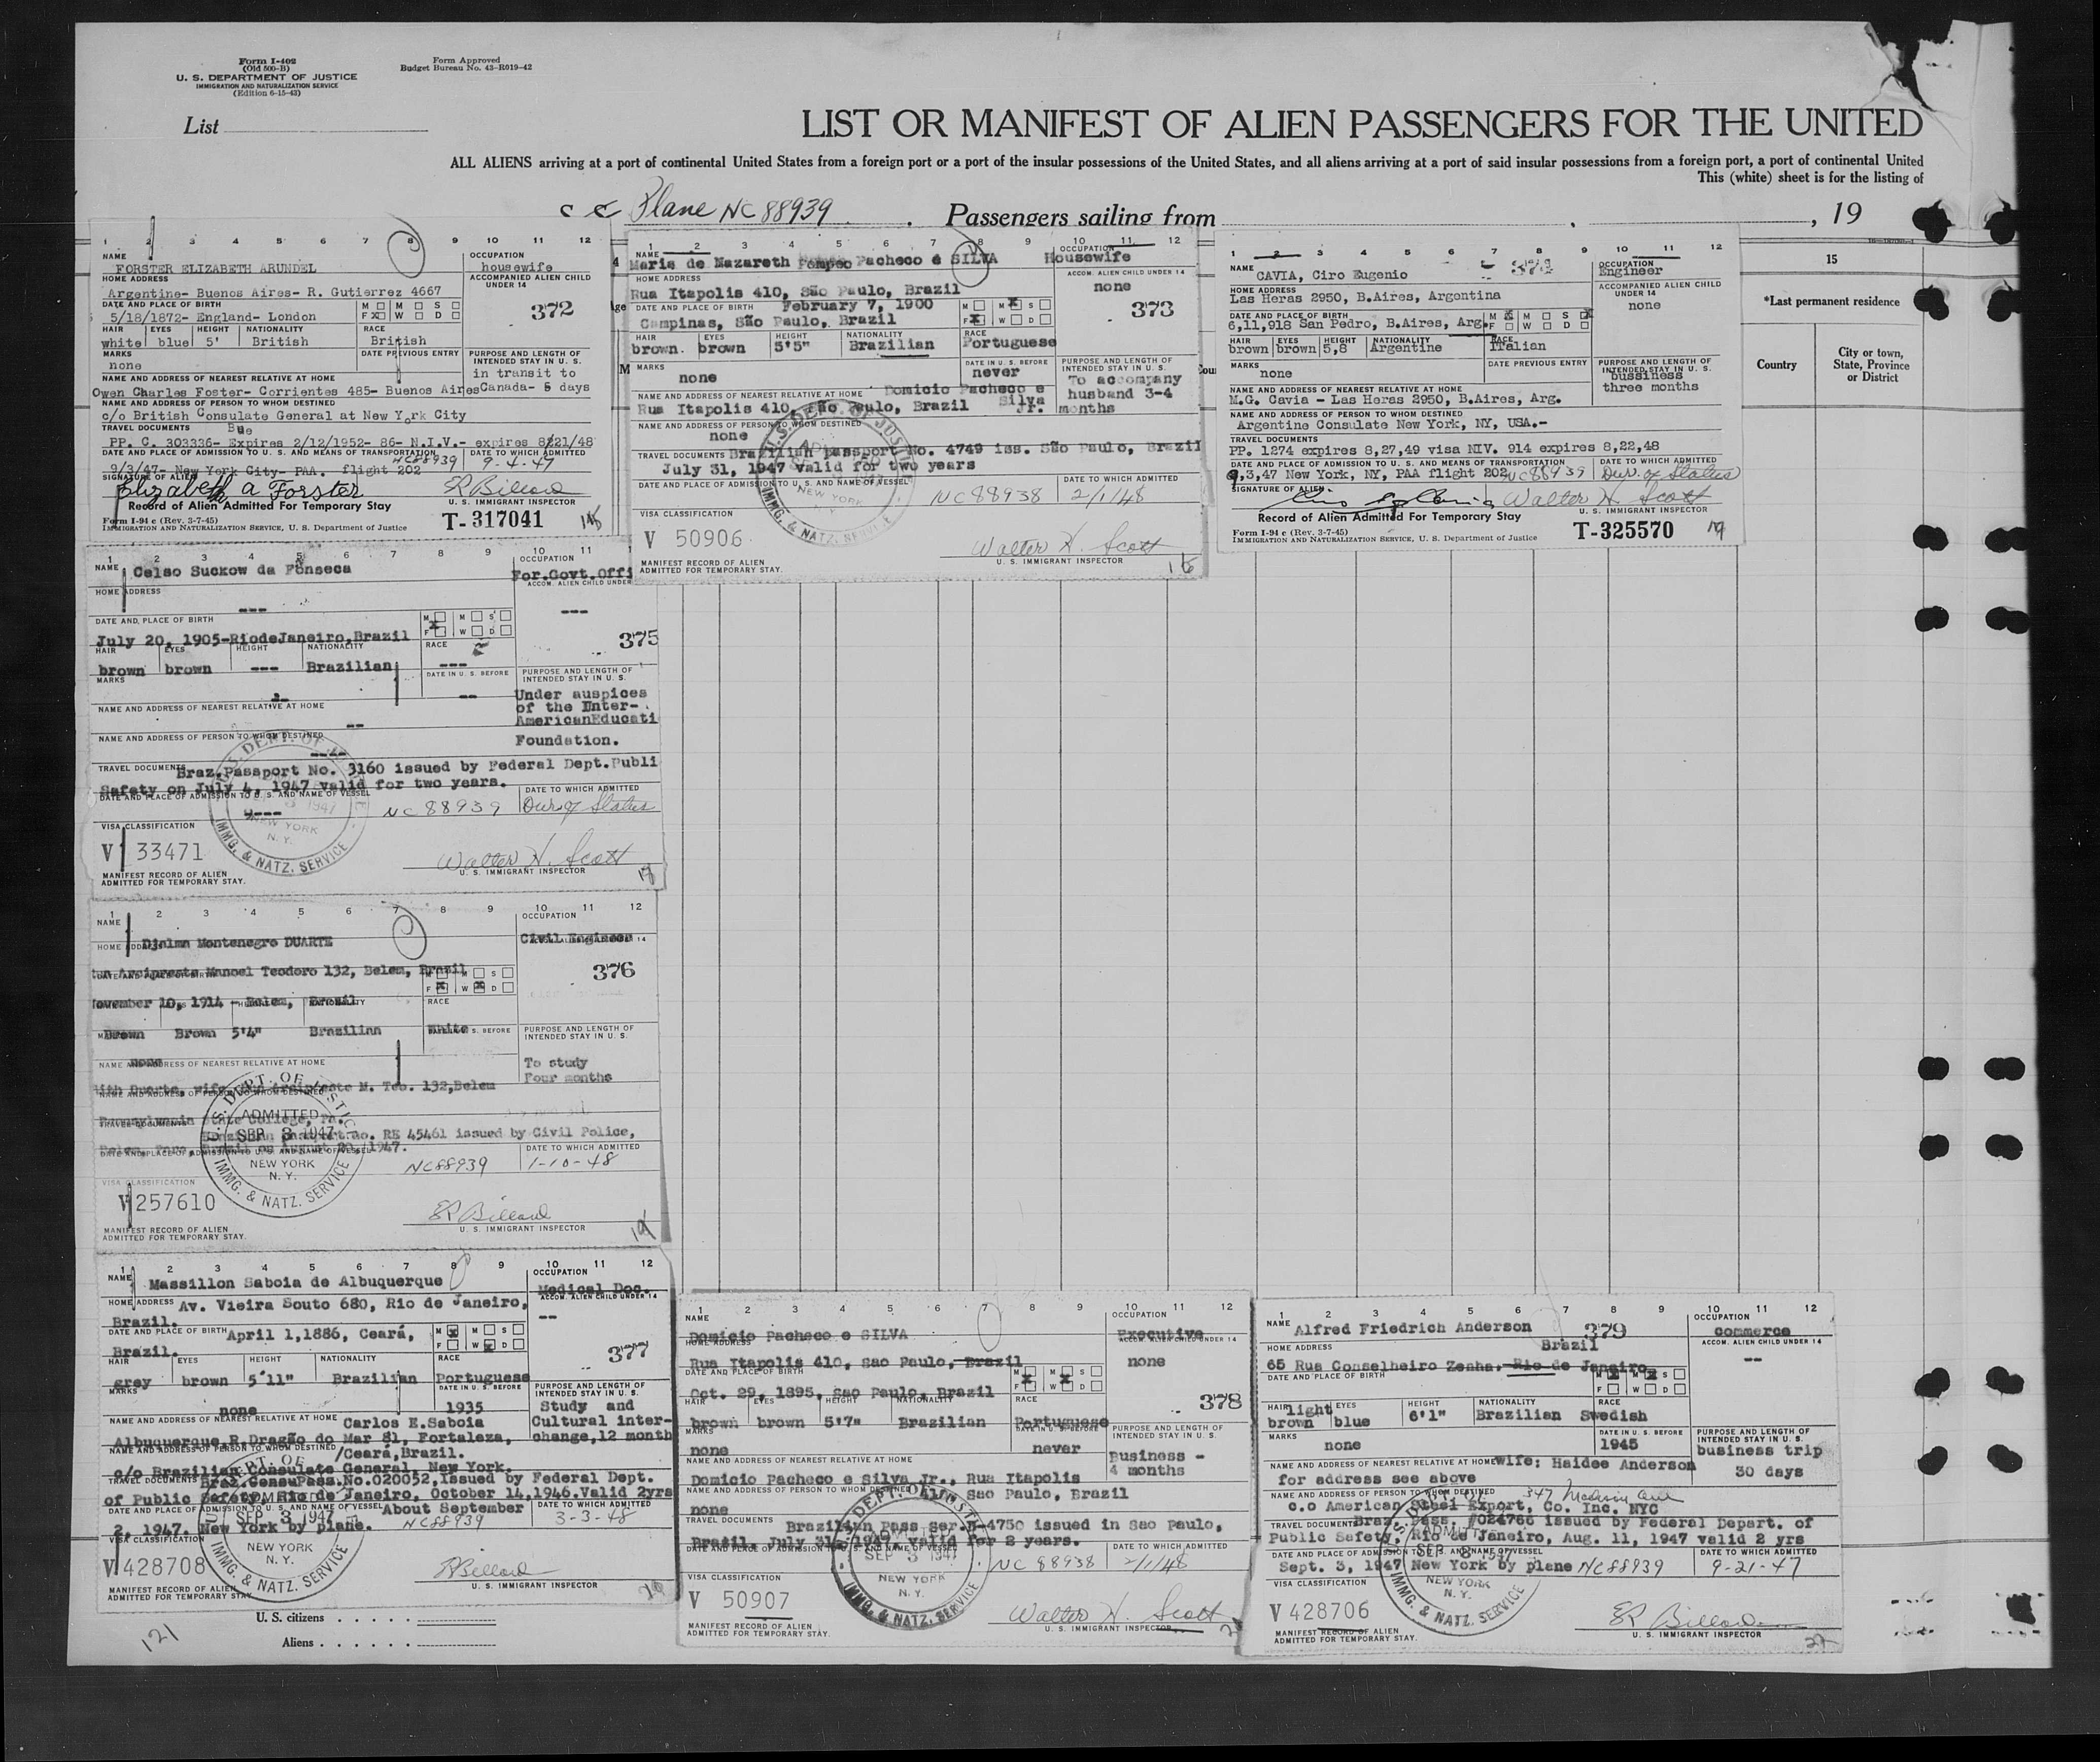 Form I-402
(Old 500-B)
U. S. DEPARTMENT OF JUSTICE
IMMIGRATION AND NATURALIZATION SERVICE
(Edition 6-15-43)
Form Approved
Budget Bureau No. 43-R019-42
List
LIST OR MANIFEST OF ALIEN PASSENGERS FOR THE UNITED
ALL ALIENS arriving at a port of continental United States from a foreign port or a port of the insular possessions of the United States, and all aliens arriving at a port of said insular possessions from a foreign port, a port of continental United
This (white) sheet is for the listing of
Plane NC 88939
Passengers sailing from , , 19
15
*Last permanent residence
Country
City or town,
State, Province
or District
1 2 3 4 5 6 7 8 9 10 11 12
NAME
FORSTER ELIZABETH ARUNDEL
OCCUPATION
housewife
HOME ADDRESS
Argentine- Buenos Aires- R. Gutierrez 4667
ACCOMPANIED ALIEN CHILD
UNDER 14
DATE AND PLACE OF BIRTH
5/18/1872- England- London
M M S
F X W D
372
HAIR EYES HEIGHT NATIONALITY RACE
white blue 5' British British
MARKS
none
DATE PREVIOUS ENTRY
PURPOSE AND LENGTH OF
INTENDED STAY IN U. S.
in transit to
Canada- 5 days
NAME AND ADDRESS OF NEAREST RELATIVE AT HOME
Owen Charles Foster- Corrientes 485- Buenos Aires
NAME AND ADDRESS OF PERSON TO WHOM DESTINED
c/o British Consulate General at New York City
TRAVEL DOCUMENTS
Bue
PP. C. 303336- Expires 2/12/1952- 86- N.I.V.- expires 8/21/48
DATE AND PLACE OF ADMISSION TO U. S. AND MEANS OF TRANSPORTATION
NC88939
DATE TO WHICH ADMITTED
9-4-47
9/3/47- New York City- PAA. flight 202
SIGNATURE OF ALIEN
Elizabeth a Forster
ER Billard
U. S. IMMIGRANT INSPECTOR
Record of Alien Admitted For Temporary Stay
Form I-94 c (Rev. 3-7-45)
IMMIGRATION AND NATURALIZATION SERVICE, U. S. Department of Justice
T-317041
1 2 3 4 5 6 7 8 9 10 11 12
NAME
Maria de Nazareth Pompeo Pacheco e SILVA
OCCUPATION
Housewife
HOME ADDRESS
Rua Itapolis 410, São Paulo, Brazil
ACCOM. ALIEN CHILD UNDER 14
none
DATE AND PLACE OF BIRTH
February 7, 1900
Campinas, São Paulo, Brazil
M M X S
F X W D
373
HAIR EYES HEIGHT NATIONALITY RACE
brown. brown 5'5" Brazilian Portuguese
MARKS
none
DATE IN U. S. BEFORE
never
PURPOSE AND LENGTH OF
INTENDED STAY IN U. S.
To accompany
husband 3-4
months
NAME AND ADDRESS OF NEAREST RELATIVE AT HOME
Domicio Pacheco e
Silva
Jr.
Rua Itapolis 410, São Paulo, Brazil
NAME AND ADDRESS OF PERSON TO WHOM DESTINED
none
TRAVEL DOCUMENTS
Brazilian passport No. 4749 iss. São Paulo, Brazil
July 31, 1947 valid for two years
DATE AND PLACE OF ADMISSION TO U. S. AND NAME OF VESSEL
NC 88938
DATE TO WHICH ADMITTED
2/1/48
VISA CLASSIFICATION
V 50906
Walter H. Scott
U. S. IMMIGRANT INSPECTOR
MANIFEST RECORD OF ALIEN
ADMITTED FOR TEMPORARY STAY.
16
1 2 3 4 5 6 7 8 9 10 11 12
NAME
CAVIA, Ciro Eugenio
374
OCCUPATION
Engineer
HOME ADDRESS
Las Heras 2950, B.Aires, Argentina
ACCOMPANIED ALIEN CHILD
UNDER 14
none
DATE AND PLACE OF BIRTH
6,11,918 San Pedro, B.Aires, Arg.
M X M S X
F W D
HAIR EYES HEIGHT NATIONALITY RACE
brown brown 5,8 Argentine Italian
MARKS
none
DATE PREVIOUS ENTRY
PURPOSE AND LENGTH OF
INTENDED STAY IN U. S.
bussiness
three months
NAME AND ADDRESS OF NEAREST RELATIVE AT HOME
M.G. Cavia - Las Heras 2950, B.Aires, Arg.
NAME AND ADDRESS OF PERSON TO WHOM DESTINED
Argentine Consulate New York, NY, USA.-
TRAVEL DOCUMENTS
PP. 1274 expires 8,27,49 visa NIV. 914 expires 8,22,48
DATE AND PLACE OF ADMISSION TO U. S. AND MEANS OF TRANSPORTATION
DATE TO WHICH ADMITTED
9,3,47 New York, NY, PAA flight 202 NC88939 Dur. of Status
SIGNATURE OF ALIEN
Walter H. Scott
U. S. IMMIGRANT INSPECTOR
Record of Alien Admitted For Temporary Stay
Form I-94 c (Rev. 3-7-45)
IMMIGRATION AND NATURALIZATION SERVICE, U. S. Department of Justice
T-325570
1 2 3 4 5 6 7 8 9 10 11
NAME
Celso Suckow da Fonseca
OCCUPATION
For.Govt.Offi
HOME ADDRESS
---
ACCOM. ALIEN CHILD UNDER
---
DATE AND PLACE OF BIRTH
July 20, 1905-RiodeJaneiro,Brazil
M M S
F W D
375
HAIR EYES HEIGHT NATIONALITY RACE
brown brown --- Brazilian ---
MARKS
DATE IN U. S. BEFORE
--
PURPOSE AND LENGTH OF
INTENDED STAY IN U. S.
Under auspices
of the Inter-
AmericanEducati
Foundation.
NAME AND ADDRESS OF NEAREST RELATIVE AT HOME
--
NAME AND ADDRESS OF PERSON TO WHOM DESTINED
TRAVEL DOCUMENTS
Braz.Passport No. 3160 issued by Federal Dept.Publi
Safety on July 4, 1947 valid for two years.
DATE AND PLACE OF ADMISSION TO U. S. AND NAME OF VESSEL
NC 88939
DATE TO WHICH ADMITTED
Dur of Status
VISA CLASSIFICATION
V 33471
Walter H. Scott
U. S. IMMIGRANT INSPECTOR
MANIFEST RECORD OF ALIEN
ADMITTED FOR TEMPORARY STAY.
1 2 3 4 5 6 7 8 9 10 11 12
NAME
Djalma Montenegro DUARTE
OCCUPATION
Civil Engineer
HOME ADDRESS
Arcipreste Manoel Teodoro 132, Belem, Brazil
M M S
F X W X D
376
ovember 10, 1914 - Belem, Brazil
RACE
Brown Brown 5'4" Brazilian White
PURPOSE AND LENGTH OF
INTENDED STAY IN U. S.
To study
Four months
none
NAME AND ADDRESS OF NEAREST RELATIVE AT HOME
Duarte, wife, Arcipreste M. Teo. 132,Belem
NAME AND ADDRESS OF PERSON TO WHOM DESTINED
Pennsylvania State College, Pa.
TRAVEL DOCUMENTS
Brazilian passport no. RE 45461 issued by Civil Police,
1947.
DATE AND PLACE OF ADMISSION TO U. S. AND NAME OF VESSEL
NC88939
DATE TO WHICH ADMITTED
1-10-48
U.S. DEPT. OF JUSTICE
ADMITTED
SEP 3 1947
NEW YORK
N. Y.
IMMG. & NATZ. SERVICE
VISA CLASSIFICATION
V 257610
ER Billard
U. S. IMMIGRANT INSPECTOR
MANIFEST RECORD OF ALIEN
ADMITTED FOR TEMPORARY STAY.
19
1 2 3 4 5 6 7 8 9 10 11 12
NAME
Massillon Saboia de Albuquerque
OCCUPATION
Medical Doc.
HOME ADDRESS
Av. Vieira Souto 680, Rio de Janeiro,
Brazil.
ACCOM. ALIEN CHILD UNDER 14
--
DATE AND PLACE OF BIRTH
April 1,1886, Ceará,
Brazil.
M X M S
F W X D
377
HAIR EYES HEIGHT NATIONALITY RACE
grey brown 5'11" Brazilian Portuguese
MARKS
none
DATE IN U. S. BEFORE
1935
PURPOSE AND LENGTH OF
INTENDED STAY IN U. S.
Study and
Cultural inter-
change,12 month
NAME AND ADDRESS OF NEAREST RELATIVE AT HOME
Carlos E.Saboia
Albuquerque,R.Dragão do Mar 81, Fortaleza,
/Ceará,Brazil.
NAME AND ADDRESS OF PERSON TO WHOM DESTINED
c/o Brazilian Consulate General, New York.
TRAVEL DOCUMENTS
Pass.No.020052,Issued by Federal Dept.
of Public Safety, Rio de Janeiro, October 14,1946.Valid 2yrs
DATE AND PLACE OF ADMISSION TO U. S. AND NAME OF VESSEL
About September
2, 1947. New York by plane.
NC88939
DATE TO WHICH ADMITTED
3-3-48
SEP 3 1947
NEW YORK
N. Y.
IMMG. & NATZ. SERVICE
VISA CLASSIFICATION
V 428708
ER Billard
U. S. IMMIGRANT INSPECTOR
MANIFEST RECORD OF ALIEN
ADMITTED FOR TEMPORARY STAY.
1 2 3 4 5 6 7 8 9 10 11 12
NAME
Domicio Pacheco e SILVA
OCCUPATION
Executive
HOME ADDRESS
Rua Itapolis 410, Sao Paulo, Brazil
ACCOM. ALIEN CHILD UNDER 14
none
DATE AND PLACE OF BIRTH
Oct. 29, 1895, Sao Paulo, Brazil
M X M X S
F W D
378
HAIR EYES HEIGHT NATIONALITY RACE
brown brown 5'7" Brazilian Portuguese
MARKS
none
DATE IN U. S. BEFORE
never
PURPOSE AND LENGTH OF
INTENDED STAY IN U. S.
Business -
4 months
NAME AND ADDRESS OF NEAREST RELATIVE AT HOME
Domicio Pacheco e Silva Jr., Rua Itapolis
410, Sao Paulo, Brazil
NAME AND ADDRESS OF PERSON TO WHOM DESTINED
none
TRAVEL DOCUMENTS
Brazilian Pass 4750 issued in Sao Paulo,
Brazil, July 31, 1947 valid for 2 years.
DATE AND PLACE OF ADMISSION TO U. S. AND NAME OF VESSEL
NC 88938
DATE TO WHICH ADMITTED
2/1/48
SEP 3 1947
NEW YORK
N. Y.
IMMG. & NATZ. SERVICE
VISA CLASSIFICATION
V 50907
Walter H. Scott
U. S. IMMIGRANT INSPECTOR
MANIFEST RECORD OF ALIEN
ADMITTED FOR TEMPORARY STAY.
1 2 3 4 5 6 7 8 9 10 11 12
NAME
Alfred Friedrich Anderson
379
OCCUPATION
commerce
HOME ADDRESS
Brazil
65 Rua Conselheiro Zenha, Rio de Janeiro
ACCOM. ALIEN CHILD UNDER 14
--
DATE AND PLACE OF BIRTH
M X M X S
F W D
HAIR EYES HEIGHT NATIONALITY RACE
light
brown blue 6'1" Brazilian Swedish
MARKS
none
DATE IN U. S. BEFORE
1945
PURPOSE AND LENGTH OF
INTENDED STAY IN U. S.
business trip
30 days
NAME AND ADDRESS OF NEAREST RELATIVE AT HOME
wife: Haidee Anderson
for address see above
NAME AND ADDRESS OF PERSON TO WHOM DESTINED
347 Madison Ave
c.o American Steel Export, Co. Inc. NYC
TRAVEL DOCUMENTS
Braz. Pass. #024766 issued by Federal Depart. of
Public Safety, Rio de Janeiro, Aug. 11, 1947 valid 2 yrs
DATE AND PLACE OF ADMISSION TO U. S. AND NAME OF VESSEL
Sept. 3, 1947 New York by plane NC88939
DATE TO WHICH ADMITTED
9-21-47
NEW YORK
N. Y.
IMMG. & NATZ. SERVICE
VISA CLASSIFICATION
V 428706
ER Billard
U. S. IMMIGRANT INSPECTOR
MANIFEST RECORD OF ALIEN
ADMITTED FOR TEMPORARY STAY.
U. S. citizens . . . . .
Aliens . . . . . .
121